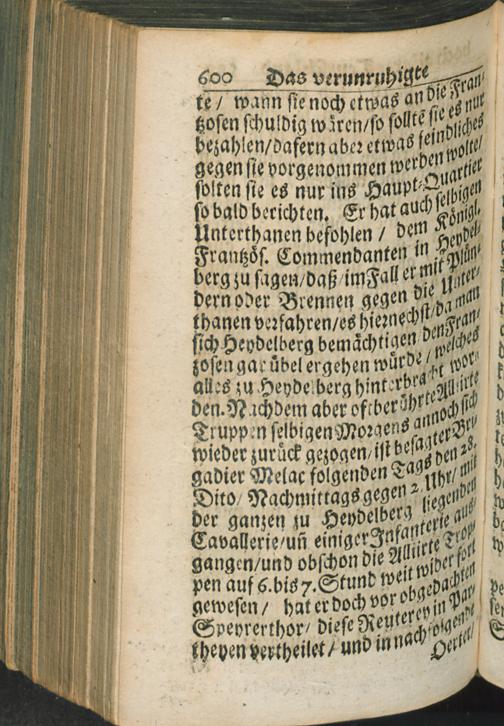 600 Das verunruhigte
te / wann sie noch etwas an die Fran-
tzosen schuldig wären/so solltē sie es nur
bezahlen/dafern aber etwas feindliches
gegen sie vorgenommen werden wolte/
solten sie es nur ins Haupt-Quartier
so bald berichten. Er hat auch selbigen
Unterthanen befohlen / dem Königl.
Frantzös. Commendanten in Heydel-
berg zu sagen/daß/im Fall er mit Plün-
dern oder Brennen gegen die Unter-
thanen verfahren/es hiernechst/da man
sich Heydelberg bemächtigen den Fran-
zosen gar übel ergehen würde / welches
alles zu Heydelberg hinterbracht wor-
den. Nachdem aber oftberührte Alliirte
Truppen selbigen Morgens annoch sich
wieder zurück gezogen/ist besagter Bri-
gadier Melac folgenden Tags den 28.
Dito/ Nachmittags gegen 2. Uhr/ mit
der ganzen zu Heydelberg liegenden
Cavallerie/uñ einiger Infanterie aus-
gangen/und obschon die Alliirte Trop-
pen auf 6. bis 7. Stund weit wider fort
gewesen / hat er doch vor obgedachten
Speyrerthor/ diese Reuterey in Par-
theyen vertheilet/ und in nachfolgende
Oerter/